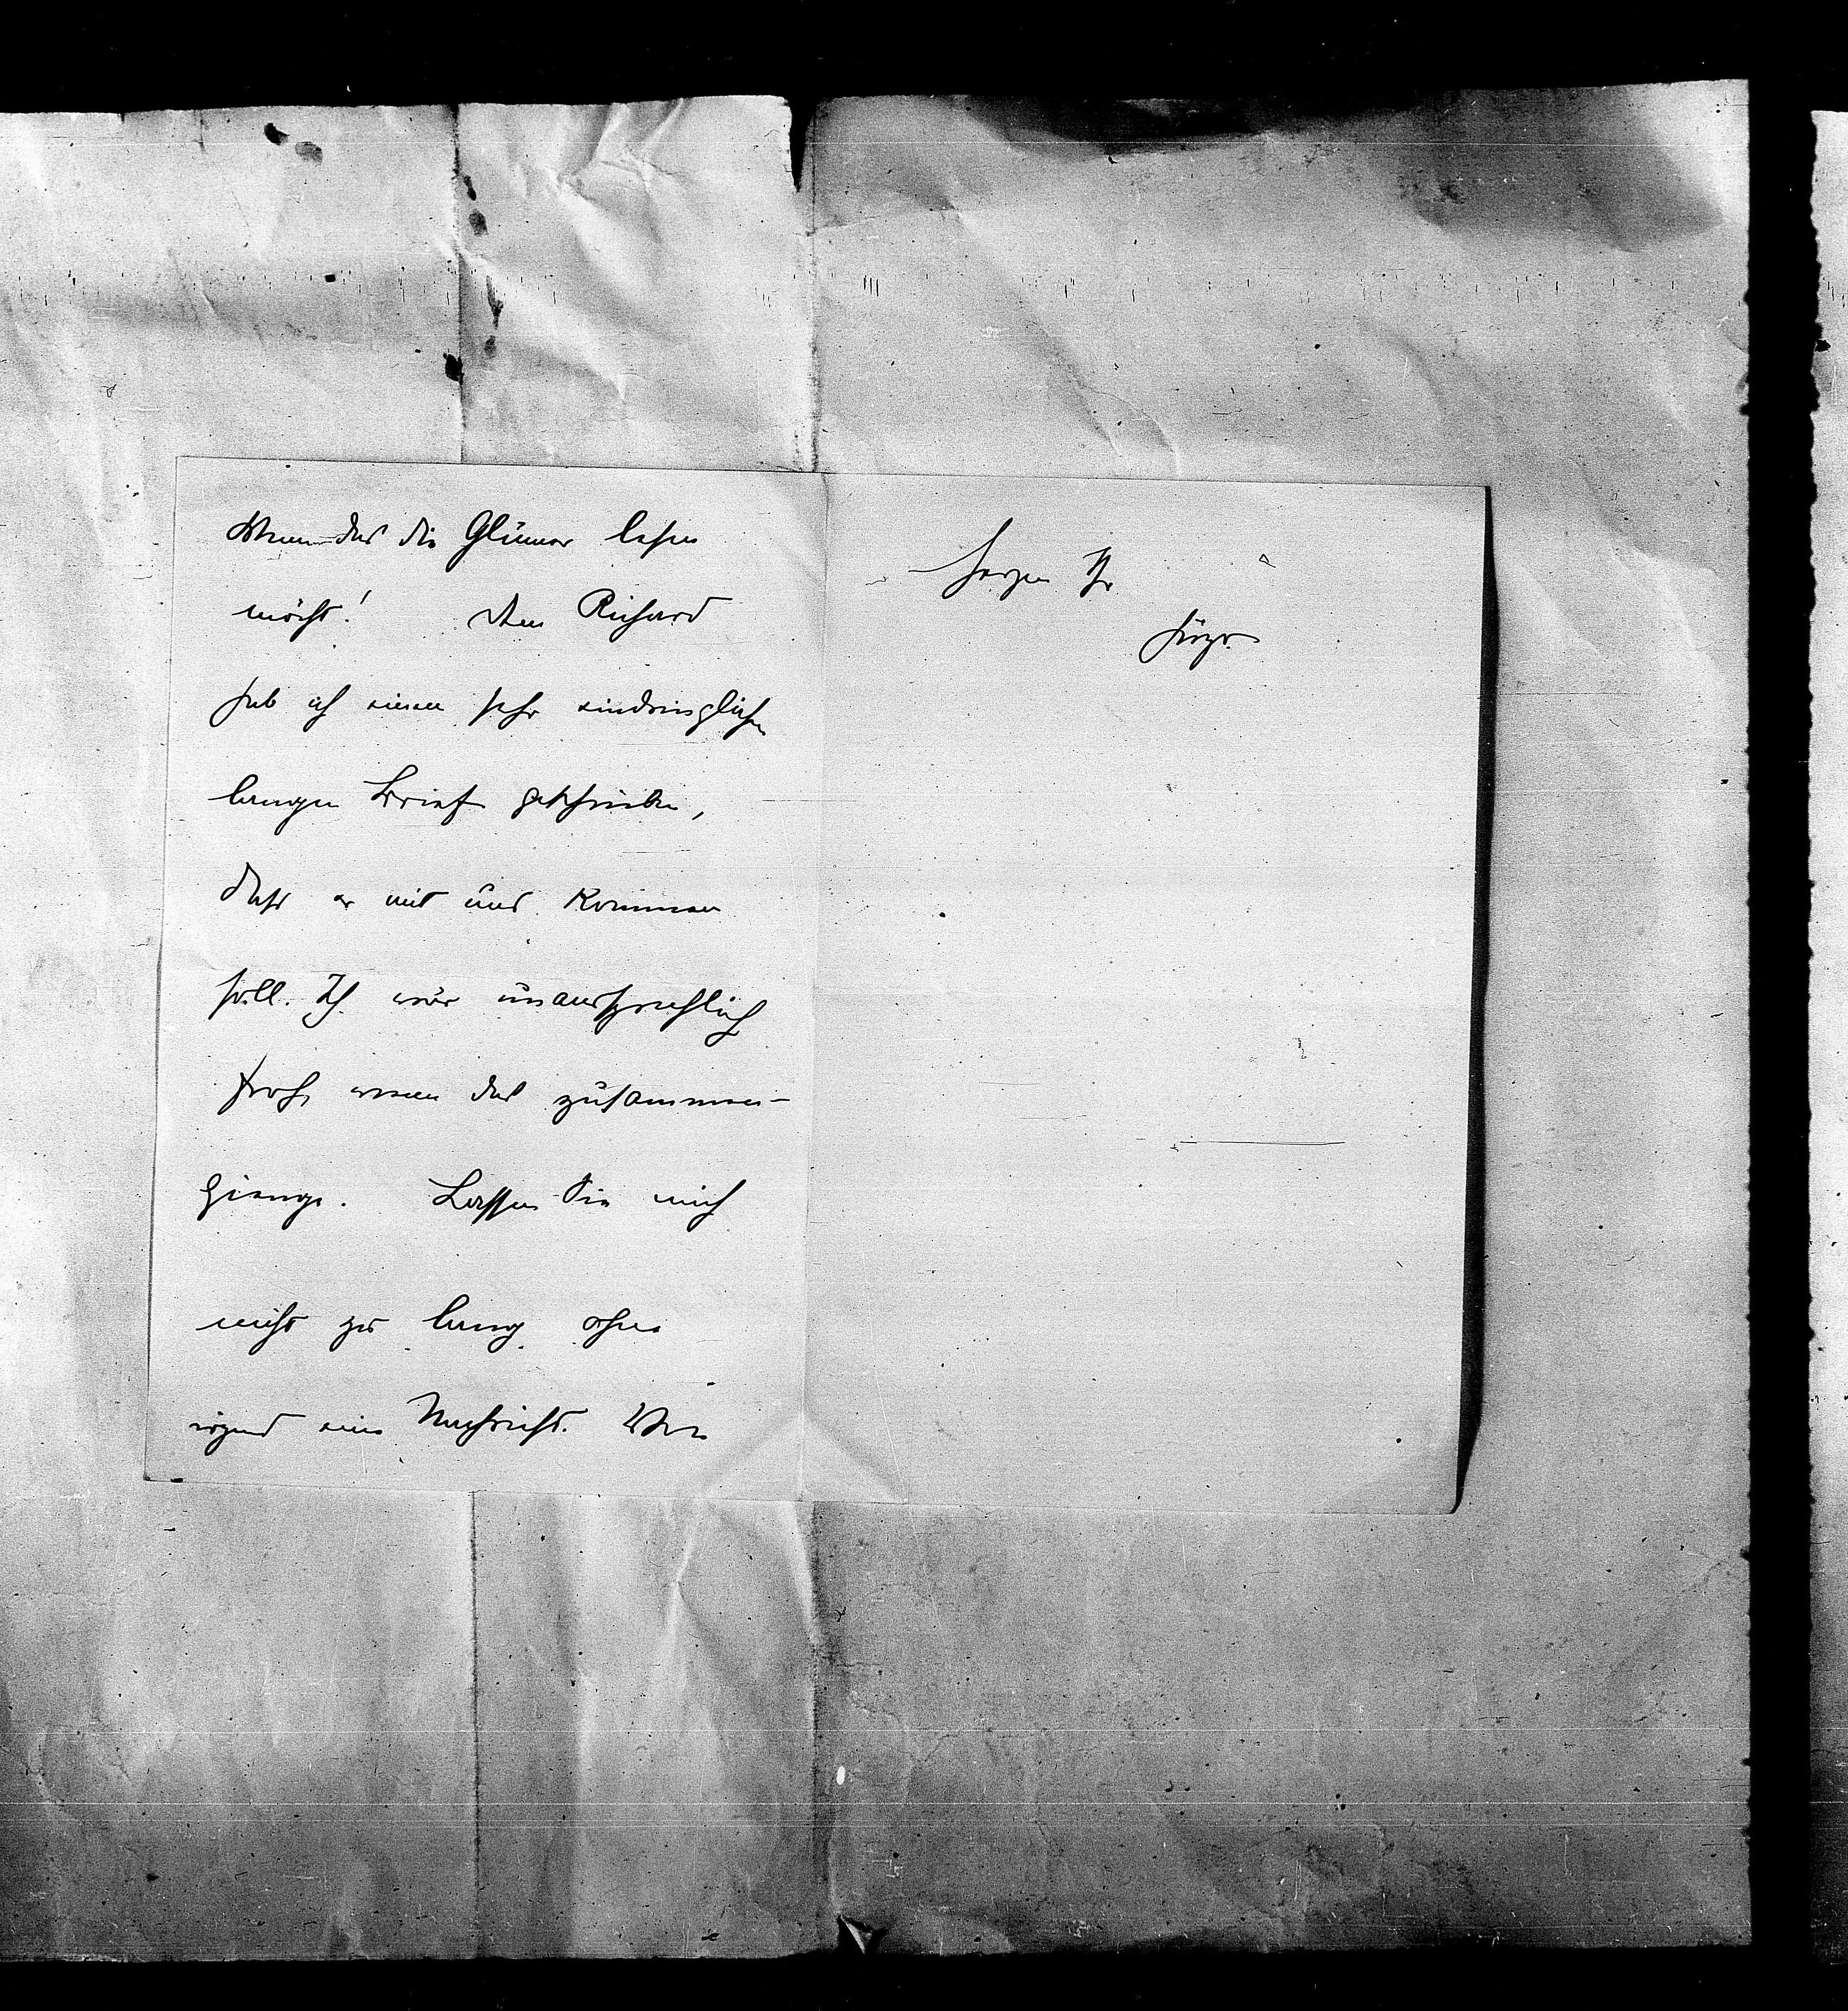 Wenn das die Glümer lesen
möcht! Dem Richard
hab ich einen sehr eindringlichen
langen Brief geschrieben,
dass er mit uns kommen
soll. Ich wär unaussprechlich
froh, wenn das zusammen-
gienge. Lassen Sie mich
nicht zu lang ohne
irgend eine Nachricht. Von
Herzen Ihr